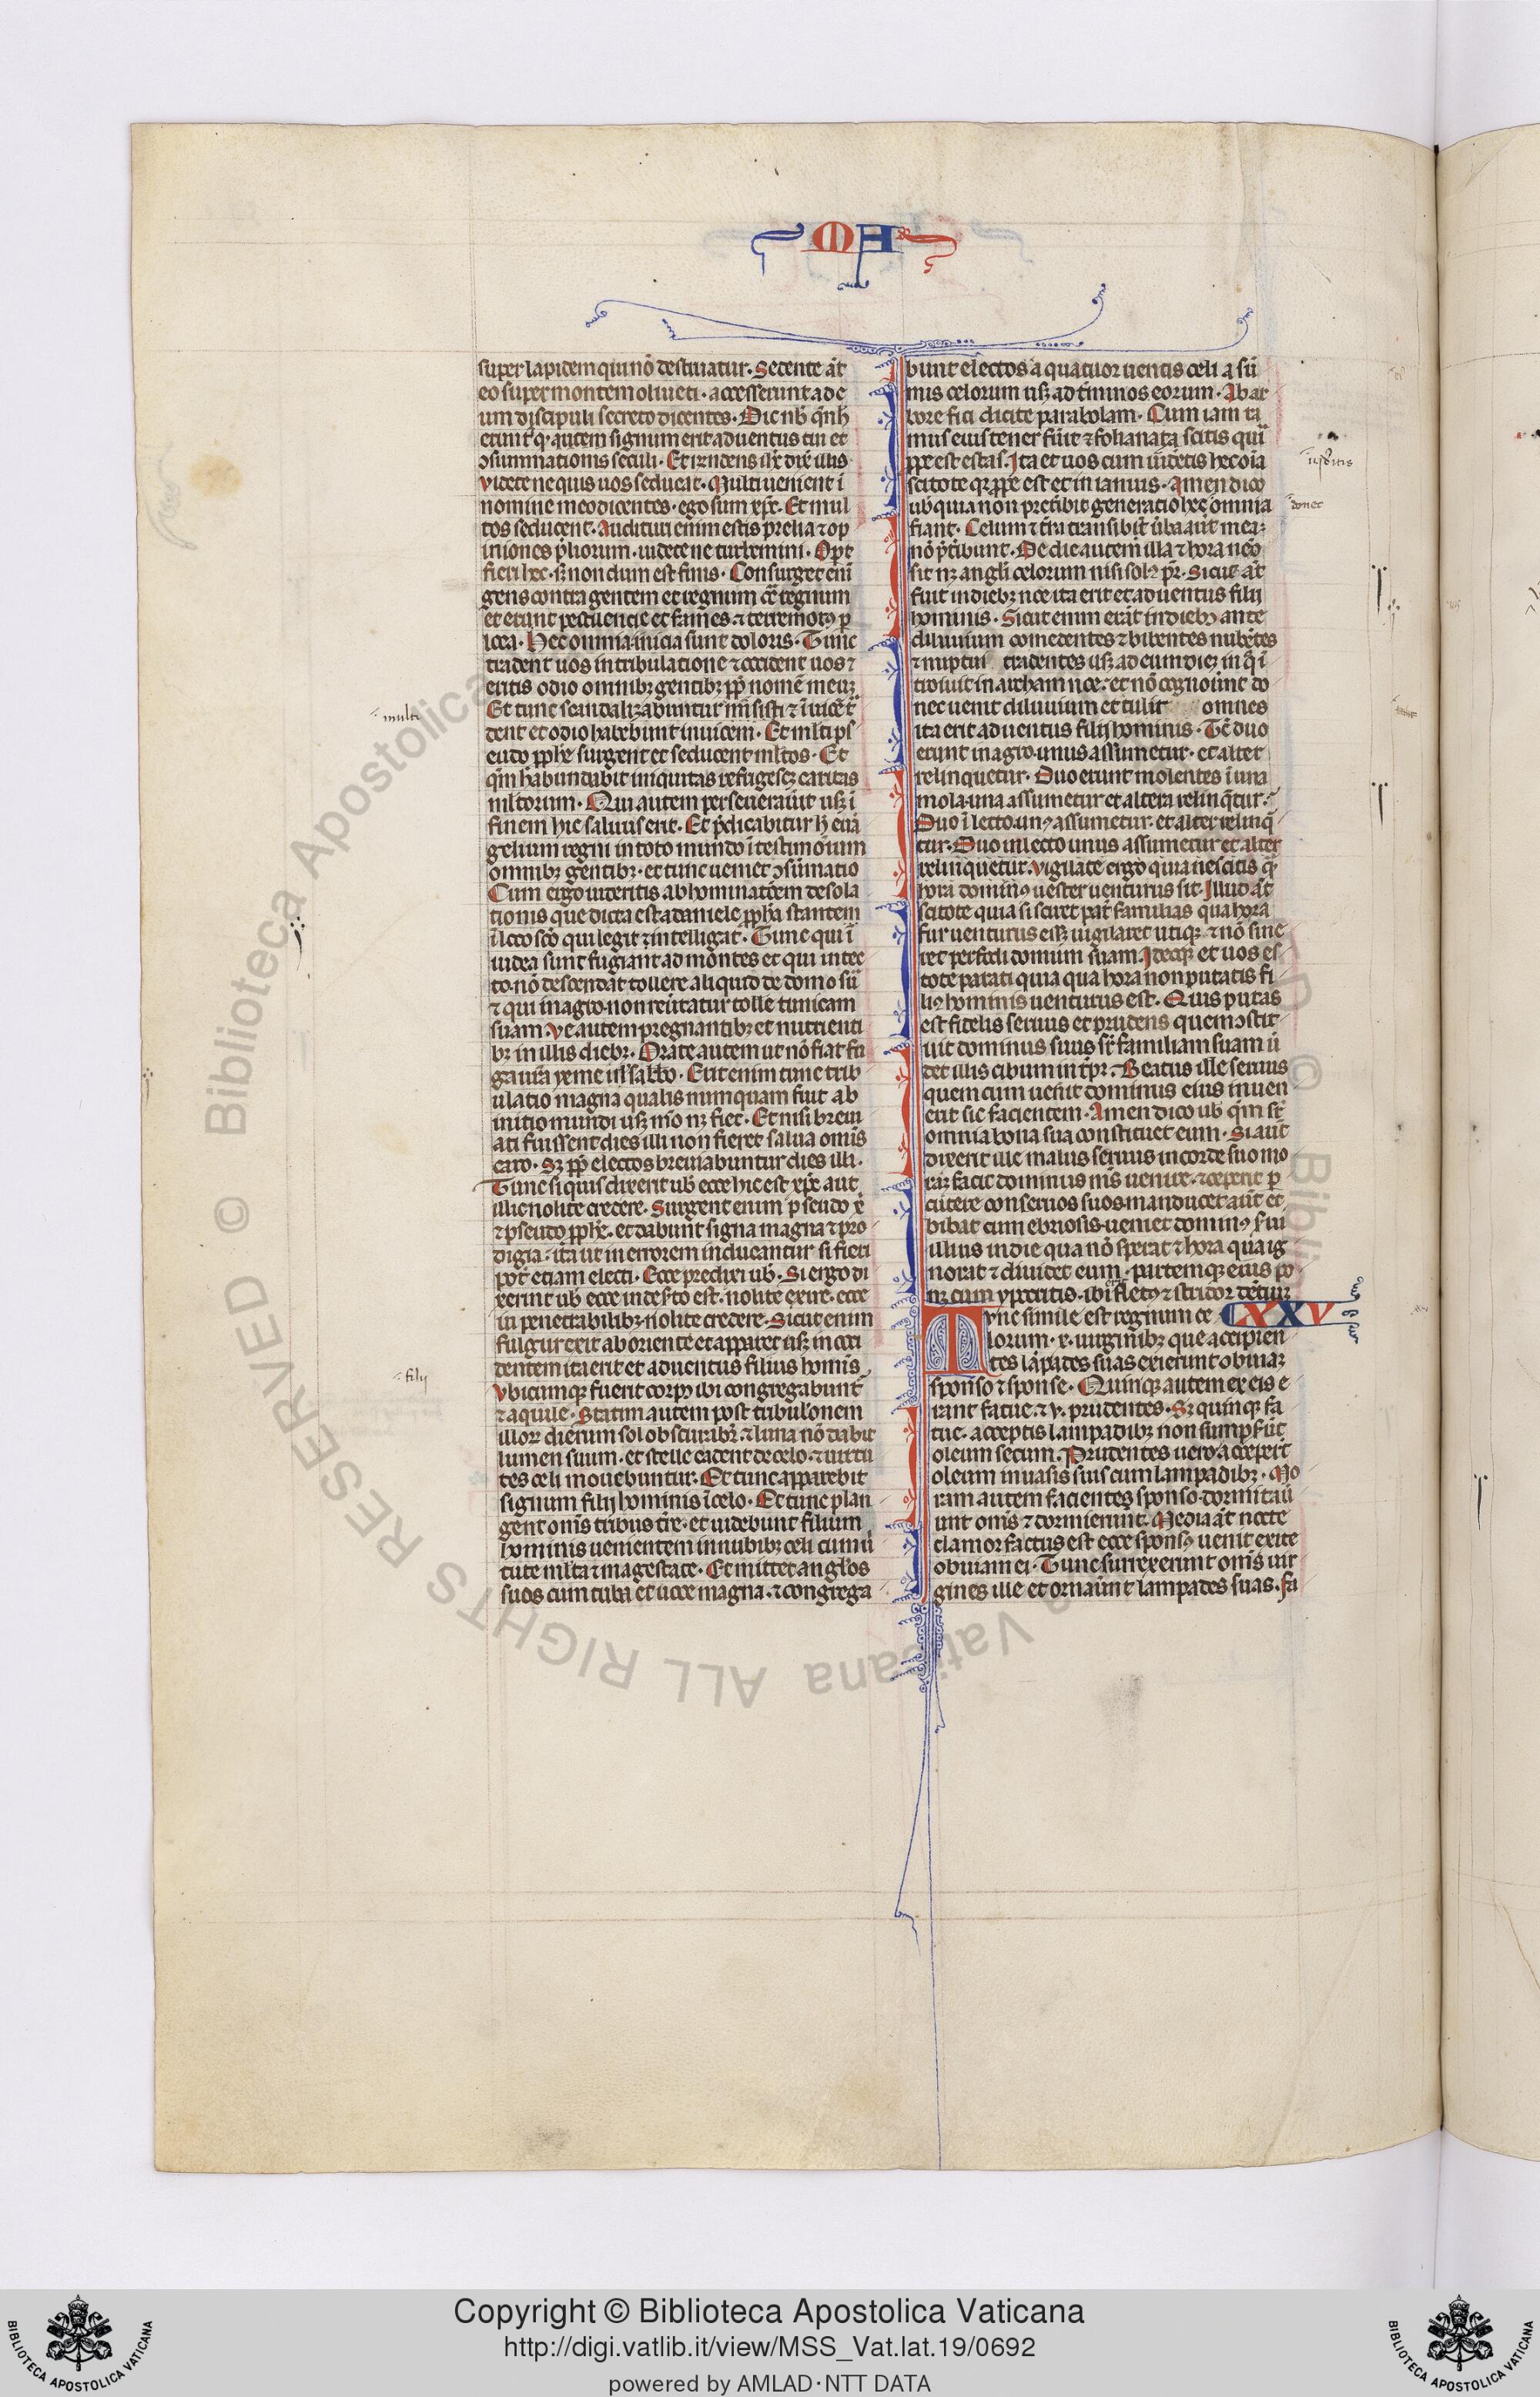 MA
super lapidem qui nõ destruatur. Sedente aũt
eo super montem oliueti. accesserunt ad e
um discipuli secreto dicentes. Dic nob̃ qñ h̃
erunt ⁊ q̃ autem signum erit aduentus tui et
ↄsummationis seculi. Et r̃ndens ih̃c dix̃ illis
videte ne quis uos seducat. Multi uenient ĩ
nomine meo dicentes. ego sum xp̃c. Et mul
tos seducent. Audituri enim estis prelia ⁊ op
iniones p̃liorum. uidete ne turbemini. Op̃t
fieri hec. sꝫ nondum est finis. Consurget eni
gens contra gentem et regnum cõ regnum
et erunt pestilencie et fames ⁊ terremotꝯ p
loca. Hec omnia inicia sunt doloris. Tunc
tradent uos in tribulatione ⁊ occident uos ⁊
eritis odio omnibꝫ gentibꝫ pp̃ nomẽ meuꝫ
Et tunc scandalizabuntur m̃ sisti ⁊ ĩuicẽ t̃
dent et odio habebunt inuicem. Et ml̃ti ps
eudo pp̃he surgent et seducent ml̃tos. Et
qm̃ habundabit iniquitas refrigescꝫ caritas
ml̃torum. Qui autem perseuerauit usꝫ ĩ
finem hic saluus erit. Et p̃dicabitur h̃ euã
gelium regni in toto mundo ĩ testimonium
omnibꝫ gentibꝫ. et tunc ueniet ↄsũmatio
Cum ergo uideritis abhominatõem desola
tionis que dicta est a daniele pp̃ha stantem
ĩ loco sc̃o qui legit ⁊ intelligat. Tunc qui ĩ
iudea sunt fugiant ad montes et qui in tec
to. nõ descendat tollere aliquid de domo suã
⁊ qui in agro. non reũtatur tolle tunicam
suam. Ve autem pregnantibꝫ et nutrienti
bꝫ in illis diebꝫ. Orate autem ut nõ fiat fu
ga ur̃a yeme uł sabb̃o. Erit enim tunc trib
ulatio magna qualis numquam fuit ab
initio mundi usꝫ mõ nꝫ fiet. Et nisi breui
ati fuissent dies illi non fieret salua omĩs
caro. Sꝫ pp̃ electos breuiabuntur dies illi.
Tunc si quis dixerit uob̃ ecce hic est xp̃c aut
illic nolite credere. Surgent enim pseudo x̃
⁊ pseudo pp̃he. et dabunt signa magna ⁊ pro
digia. ita ut in errorem inducantur si fieri
pot̃ etiam electi. Ecce predixi uob̃. Si ergo di
xerint uob̃ ecce in deserto est. nolite exire. ecce
in penetrabilibꝫ. nolite credere. Sicut enim
fulgur exit ab oriente et apparet usꝫ in occi
dentem ita erit et aduentus filius homĩs
Vbicumqꝫ fuerit corpꝯ ibi congregabunt̃
⁊ aquile. Statim autem post tribul̃onem
illorꝫ dierum sol obscurabit̃. ⁊ luna nõ dabit
lumen suum. et stelle cadent de celo. ⁊ uirtu
tes celi mouebuntur. Et tunc apparebit
signum filij hominis ĩ celo. Et tunc plan
gent om̃s tribus t̃re. et uidebunt filium
hominis uenientem in nubibꝫ celi cum ũ
tute ml̃ta ⁊ magestate. Et mittet anglõs
suos cum tuba et uoce magna. ⁊ congrega
multi
filij
bunt electos a quatuor uentis celi a sũ
mis celorum usꝫ ad t̃minos eorum. Ab ar
bore fici dicite parabolam. Cum iam ra
mus eius tener fũit ⁊ folia nata scitis quĩ
ppe est estas. Ita et uos cum uid̃etis hec oĩa
scitote qꝫ ppe est et in ianuis. Amen dico
uob̃ quia non preteribit generatio hec omnia
fiant. Celum ⁊ t̃ra transibũt ũba aut̃ mea
nõ p̃tibunt. De die autem illa ⁊ hora nemo
scit nꝫ angl̃i celorum nisi solꝯ pr̃. Sicut aũt
fuit in diebꝫ noe ita erit et aduentus filij
hominis. Sicut enim erãt in diebꝫ ante
diluuium comedentes ⁊ bibentes nubẽtes
⁊ nuptui tradentes usꝫ ad eum dieꝫ in q̃ ĩ
troiuit in archam noe. et nõ cognoũnt do
nec uenit diluuium et tulit omnes
ita erit aduentus filij hominis. Tc̃ duo
erunt in agro. unus assumetur. et alter
relinquetur. Duo erunt molentes ĩ una
mola. una assumetur et altera relinq̃tur.
Duo ĩ lecto. unꝯ assumetur. et alter relinq̃
tur. Duo in lecto unus assumetur et alter
relinquetur. Vigilate ergo quia nescitis q̃
hora dominꝯ uester uenturus sit. Illud aũt
scitote quia si sciret pat̃ familias qua hora
fur uenturus eẽt uigilaret utiqꝫ ⁊ nõ sine
ret perfodi domum suam. Ideoqꝫ et uos es
tote parati quia qua hora non putatis fi
liꝯ hominis uenturus est. Quis putas
est fidelis seruus et prudens quem ↄstit
uit dominus suus sr̃ familiam suam ũ
det illis cibum in t̃pr̃. Beatus ille seruus
quem cum uen̄it dominus eius inuen
erit sic facientem. Amen dico uob̃ qm̃ sr̃
omnia bona sua constituet eum. Si aut̃
dixerit ille malus seruus in corde suo mo
rã facit dominus m̃s uenire. ⁊ ceperit p
cutere conseruos suos. manducet aut̃ et
bibat cum ebriosis. ueniet dominꝯ s̃ui
illius in die qua nõ sperat ⁊ hora qua ig
norat ⁊ diuidet eum. partemqꝫ eius po
nꝫ cum ypocritis. ibi erit fletꝯ ⁊ stridor dẽtiuꝫ
Tvnc simile est regnum ce XXV
lorum. x. uirginibꝫ que accipien
tes lãpades suas exierunt obuiaꝫ
sponso ⁊ sponse. Quinqꝫ autem ex eis e
rant fatue. ⁊ v. prudentes. Sꝫ quinqꝫ fa
tue. acceptis lampadibꝫ non sumpsert̃
oleum secum. Prudentes uero acceper̃t
oleum in uasis suis cum lampadibꝫ. Mo
ram autem facientes sponso. dormitau
unt om̃s ⁊ dormierunt. Media aũt nocte
clamor factus est ecce sponsꝯ uenit exite
obuiam ei. Tunc surrexerunt om̃s uir
gines ille et ornauñt lampades suas. fa
donec
Copyright © Biblioteca Apostolica Vaticana
http://digi.vatlib.it/view/MSS_Vat.lat.19/0692
powered by AMLAD·NTT DATA
BIBLIOTECA APOSTOLICA VATICANA
BIBLIOTECA APOSTOLICA VATICANA
© Biblioteca Apostolica Vaticana ALL RIGHTS RESERVED